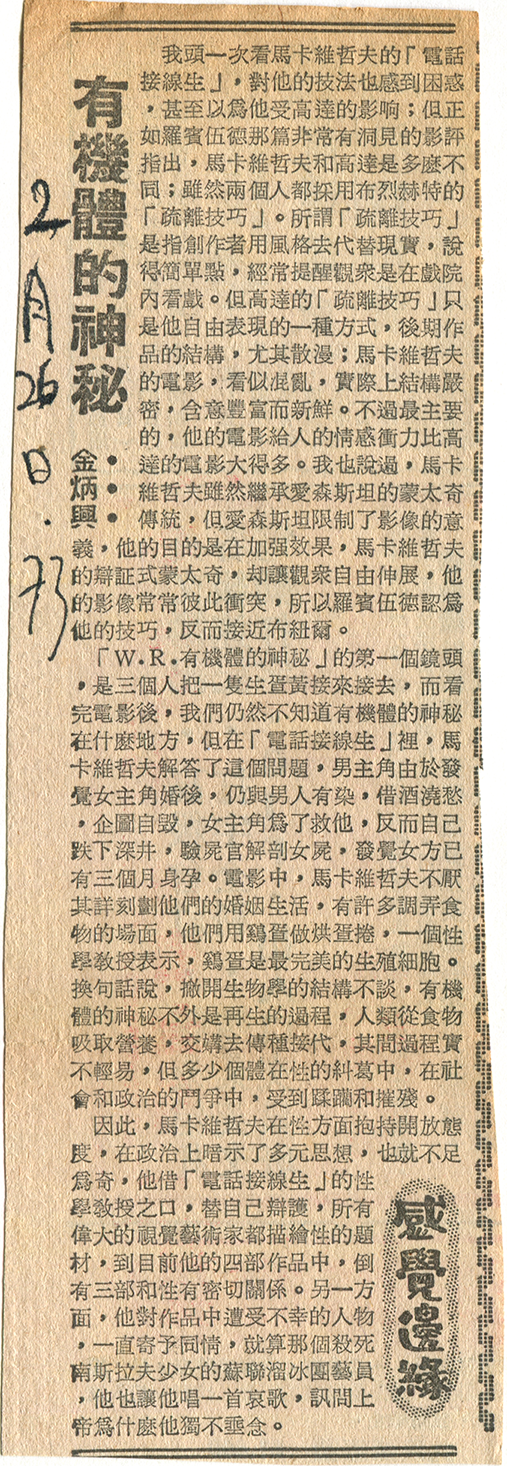 有機體的神秘
金炳興
2月26日.73
我頭一次看馬卡維哲夫的「電話
接線生」,對他的技法也感到困惑
,甚至以爲他受高達的影响;但正
如羅賓伍德那篇非常有洞見的影評
指出,馬卡維哲夫和高達是多麽不
同;雖然兩個人都採用布烈赫特的
「疏離技巧」。所謂「疏離技巧」
是指創作者用風格去代替現實,說
得簡單點。經常提醒觀衆是在戲院
內看戲。但高達的「疏離技巧」只
是他自由表現的一種方式,後期作
品的結構,尤其散漫;馬卡維哲夫
的電影,看似混亂,實際上結構嚴
密,含意豐富而新鮮。不過最主要
的,他的電影給人的情感衝力比高
達的電影大得多。我也說過,馬卡
維哲夫雖然繼承愛森斯坦的蒙太奇
傳統,但愛森斯限制坦了影像的意
義,他的目的是在加强效果,馬卡維哲夫
的辯証式蒙太奇,却讓觀衆自由伸展,他
的影像常常彼此衝突,所以羅賓伍德認爲
他的技巧,反而接近布紐爾。
「W.R.有機體的神秘」的第一個鏡頭
,是三個人把一隻生蛋黃接來接去,而看
完電影後,我們仍然不知道有機體的神秘
在什麽地方,但在「電話接線生」裡,馬
卡維哲夫解答了這個問題,男主角由於發
覺女主角婚後,仍與男人有染,借酒澆愁
,企圖自毀,女主角爲了救他,反而自己
跌下深井,驗屍官解剖女屍,發覺女方已
有三個月身孕。電影中,馬卡維哲夫不厭
其詳刻劃他們的婚姻生活,有許多調弄食
物的塲面,他們用鷄蛋做烘蛋捲,一個性
學敎授表示,鷄蛋是最完美的生殖細胞。
換句話說,撇開生物學的結構不談,有機
體的神秘不外是再生的過程,人類從食物
吸取營養,交媾去傳種接代,其間過程實
不輕易,但多少個體在性的糾葛中,在社
會和政治的鬥爭中,受到蹂躪和摧殘。
因此,馬卡維哲夫在性方面抱持開放態
度,在政治上暗示了多元思想,也就不足
爲奇,他借「電話接線生」的性
學敎授之口,替自己辯護,所有
偉大的視覺藝術家都描繪性的題
材,到目前他的四部作品中,倒
有三部和性有密切關係。另一方
面,他對作品中遭受不幸的人物
,一直寄予同情,就算那個殺死
南斯拉夫少女的蘇聯溜冰團藝員
,他也讓他唱一首哀歌,訊問上
帝爲什麽他獨不垂念。
感覺邊緣